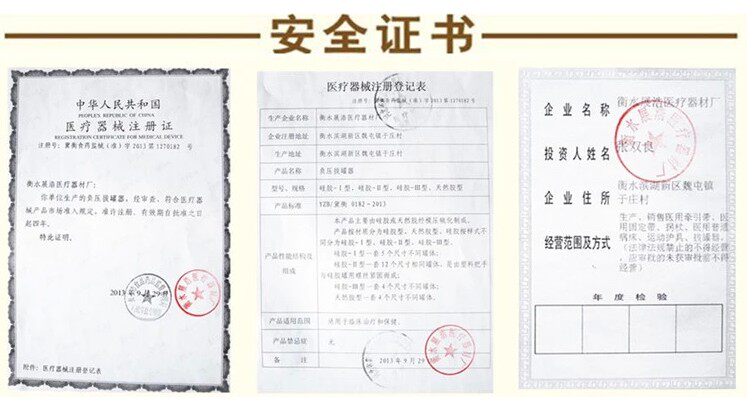 安全证书
中华人民共和国
PEOPLE'S REPUBLIC OF CHINA
医疗器械注册证
REGISTRATION CERTIFICATE FOR MEDICAL DEVICE
注册号：冀衡食药监械（准）字2013第1270182 号
衡水展浩医疗器材厂：
你单位生产的负压拔罐器，经审查，符合医疗器
械产品市场准入规定，准许注册，有效期自批准之日
起四年。
特此证明。
2013年9月29
附件：医疗器械注册登记表
医疗器械注册登记表
注册号：冀衡食药监械（准）字2013第1270182 号
生产企业名称 衡水展浩医疗器材厂
企业注册地址 衡水滨湖新区魏屯镇于庄村
生产地址 衡水滨湖新区魏屯镇于庄村
产品名称 负压拔罐器
型号、规格 硅胶-Ⅰ型、硅胶-Ⅱ型、硅胶-Ⅲ型、天然胶型
产品标准 YZB/冀衡 0182-2013
产品性能结构及
组成
本产品主要由硅胶或天然胶经模压硫化制成。
产品按材质分为硅胶型、天然胶型，硅胶按样式不
同分为硅胶-Ⅰ型、硅胶-Ⅱ型、硅胶-Ⅲ型。
硅胶-Ⅰ型一套5个尺寸不同罐体；
硅胶-Ⅱ型一套12个尺寸相同罐体，是由塑料把手
与硅胶罐用螺丝紧固而成；
硅胶-Ⅲ型一套4个尺寸不同罐体；
天然胶型一套4个尺寸不同罐体。
产品适用范围 适用于临床治疗和保健。
产品禁忌症 无
备 注 2013年9月29
企业名称 衡水展浩医疗器材厂
投资人姓名 张双良
企业住所 衡水滨湖新区魏屯镇
于庄村
经营范围及方式
生产、销售医用牵引带、医
用固定带、拐杖、医用普通
病床、运动护具、拔罐器。
（法律法规禁止的不得经营，
应审批的未获审批前不得
经营）
年度检验